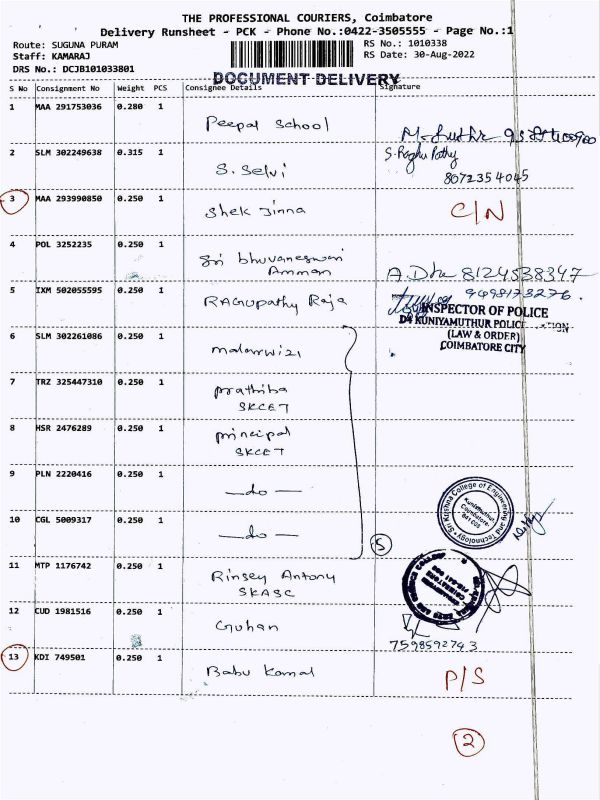 THE PROFESSIONAL COURIERS, Coimbatore
Delivery Runsheet - PCK - Phone No.:0422-3505555 - Page No.:1
Route: SUGUNA PURAM
Staff: KAMARAJ
DRS No.: DCJB101033801
RS No.: 1010338
RS Date: 30-Aug-2022
DOCUMENT DELIVERY
S No Consignment No Weight PCS Consignee Details Signature
1 MAA 291753036 0.280 1 Peepal School
2 SLM 302249638 0.315 1 S. Selvi S. Raghu Pathy
8072354045
3 MAA 293990850 0.250 1 Shek Jinna C/N
4 POL 3252235 0.250 1 Sri bhuvaneswari
Amman A. Dha 8124538347
5 IXM 502055595 0.250 1 RAGUpathy Raja 9498173276.
INSPECTOR OF POLICE
D4 KUNIYAMUTHUR POLICE
(LAW & ORDER)
COIMBATORE CITY
6 SLM 302261086 0.250 1
7 TRZ 325447310 0.250 1 Prathiba
SKCET
8 HSR 2476289 0.250 1 principal
SKCET
9 PLN 2220416 0.250 1 —do—
10 CGL 5009317 0.250 1 —do—
5
Sri Krishna College of Engineering and Technology
Kuniamuthur
Coimbatore-
641 008
11 MTP 1176742 0.250 1 Rinsey Antony
SKASC
12 CUD 1981516 0.250 1 Guhan
7598592793
13 KDI 749501 0.250 1 Babu Kamal P/S
2